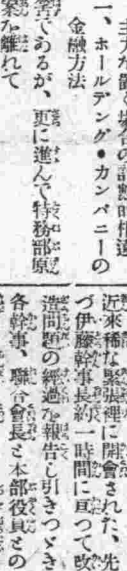 場合の
的相違
一、ホールデング・カンパニーの
金融方法
筈であるが、更に進んで特務部原
案を離れて
近來稀な緊張裡に開會された、先
づ伊藤幹事長約一時間に亘つて改
造問題の經過を報告し引きつゞき
各幹事、聯合會長と本部役員との